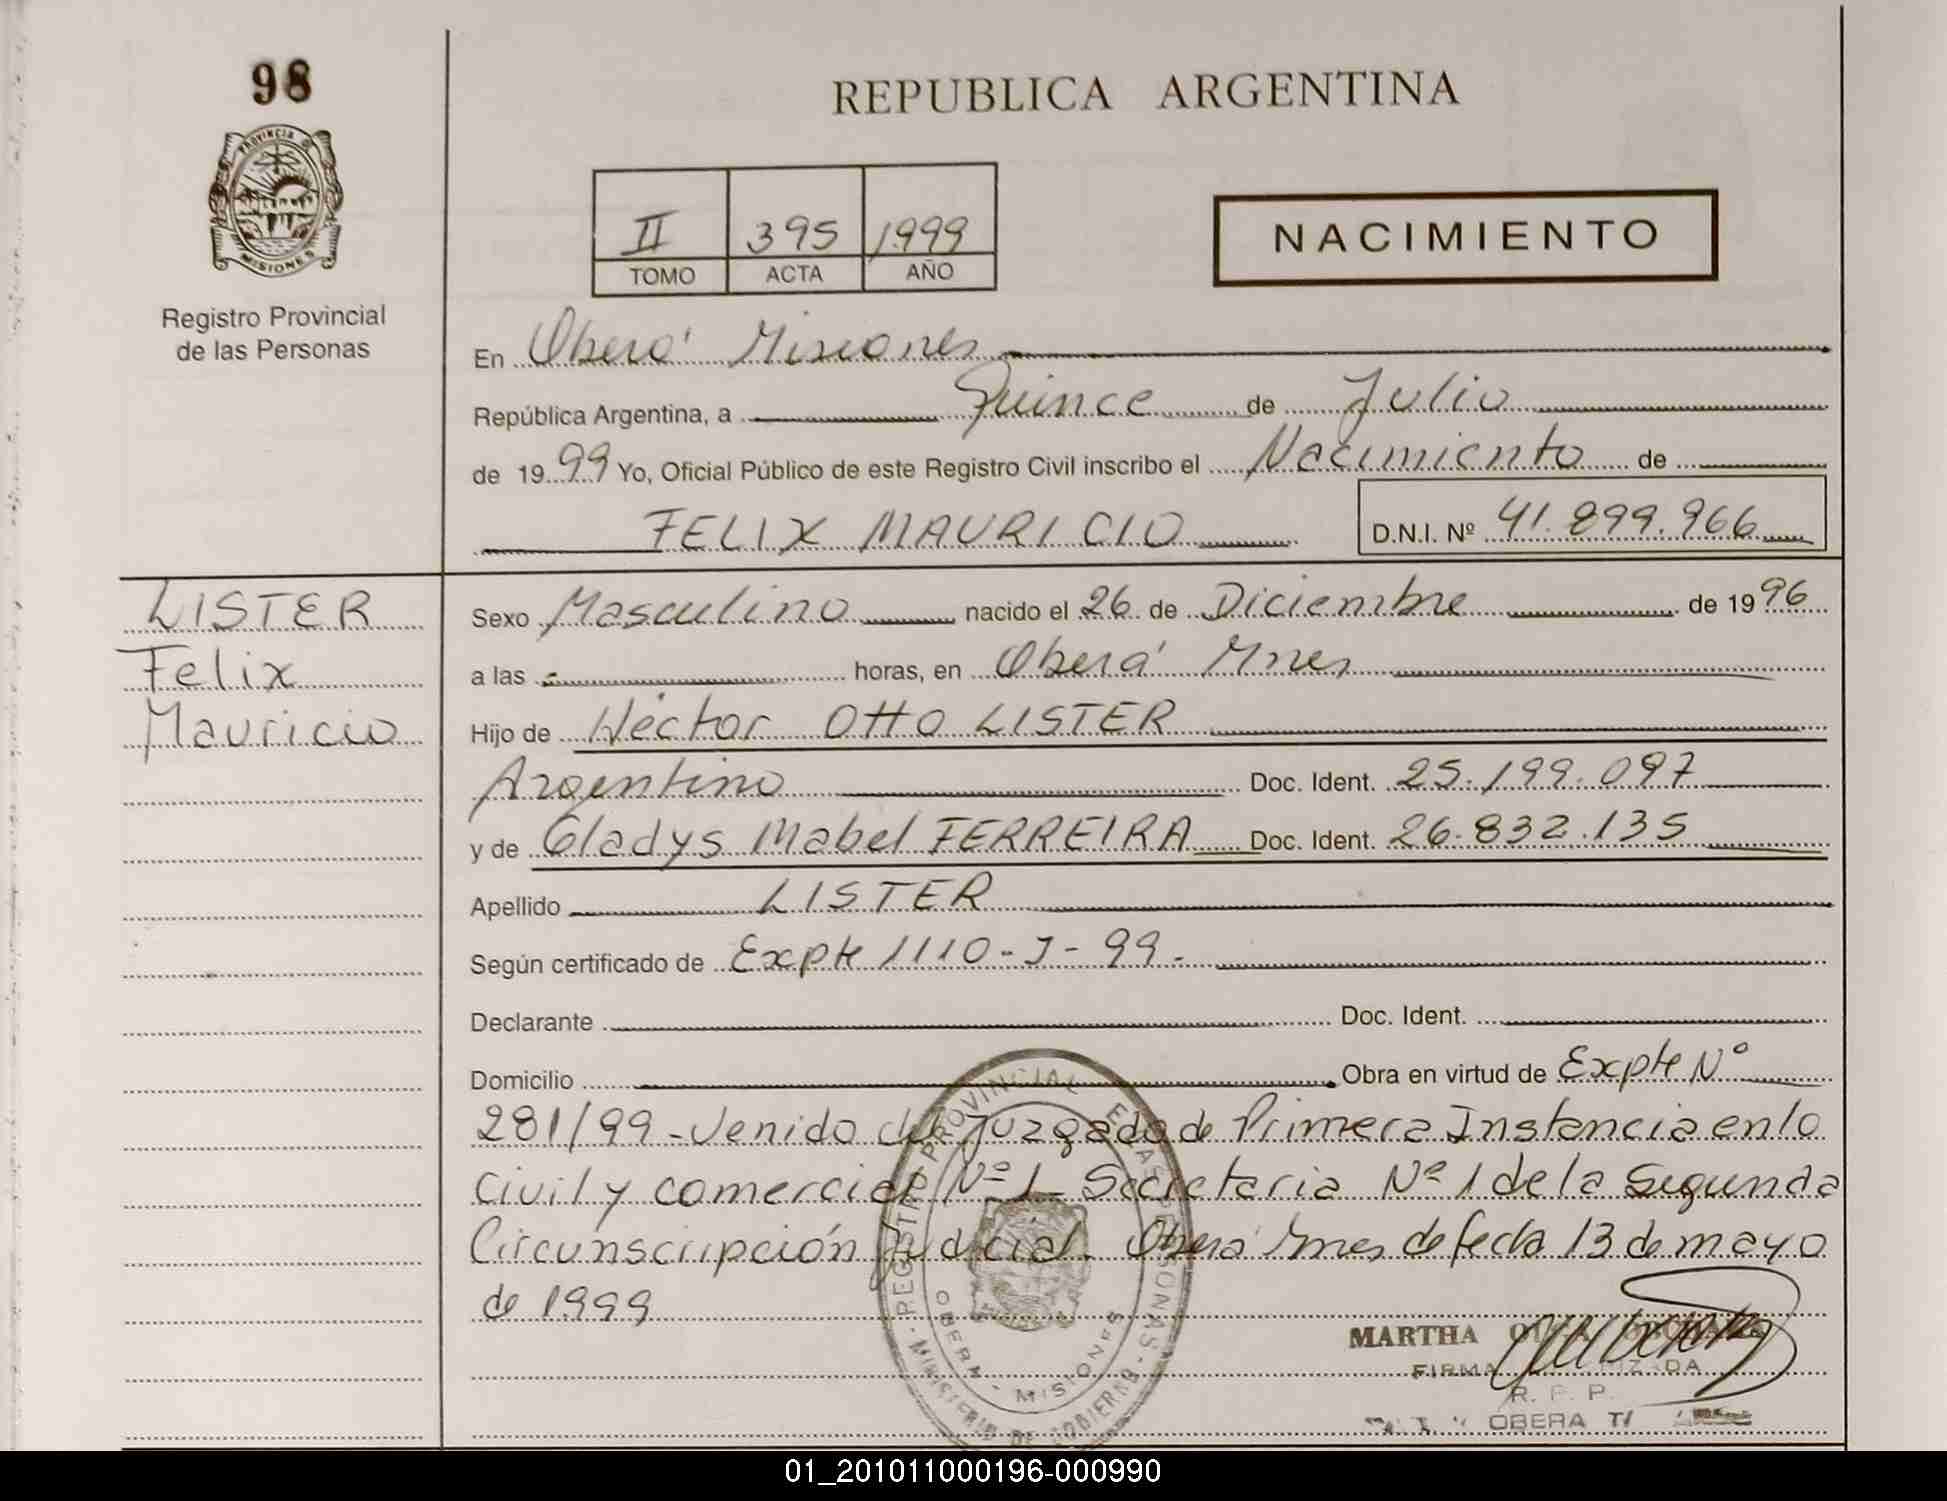 98
REPUBLICA ARGENTINA
PROVINCIA
MISIONES
Registro Provincial
de las Personas
II 395 1999
TOMO ACTA AÑO
NACIMIENTO
En Oberá Misiones
República Argentina, a Quince de Julio
de 1999 Yo, Oficial Público de este Registro Civil inscribo el Nacimiento de
FELIX MAURICIO D.N.I. Nº 41.899.966
LISTER
Felix
Mauricio
Sexo Masculino nacido el 26 de Diciembre de 1996
a las horas, en Oberá Mnes
Hijo de Héctor Otto LISTER
Argentino Doc. Ident. 25.199.097
y de Gladys Mabel FERREIRA Doc. Ident. 26.832.135
Apellido LISTER
Según certificado de Expte 1110-J-99.
Declarante Doc. Ident.
Domicilio Obra en virtud de Expte Nº
281/99 - Venido del Juzgado de Primera Instancia en lo
Civil y comercial Nº 1 Secretaria Nº 1 de la Segunda
Circunscripción Judicial. Oberá Mnes de fecha 13 de mayo
de 1999
REGISTRO PROVINCIAL DE LAS PERSONAS
MINISTERIO DE GOBIERNO
OBERA - MISIONES
MARTHA
FIRMA
R. P. P.
OBERA
01_201011000196-000990